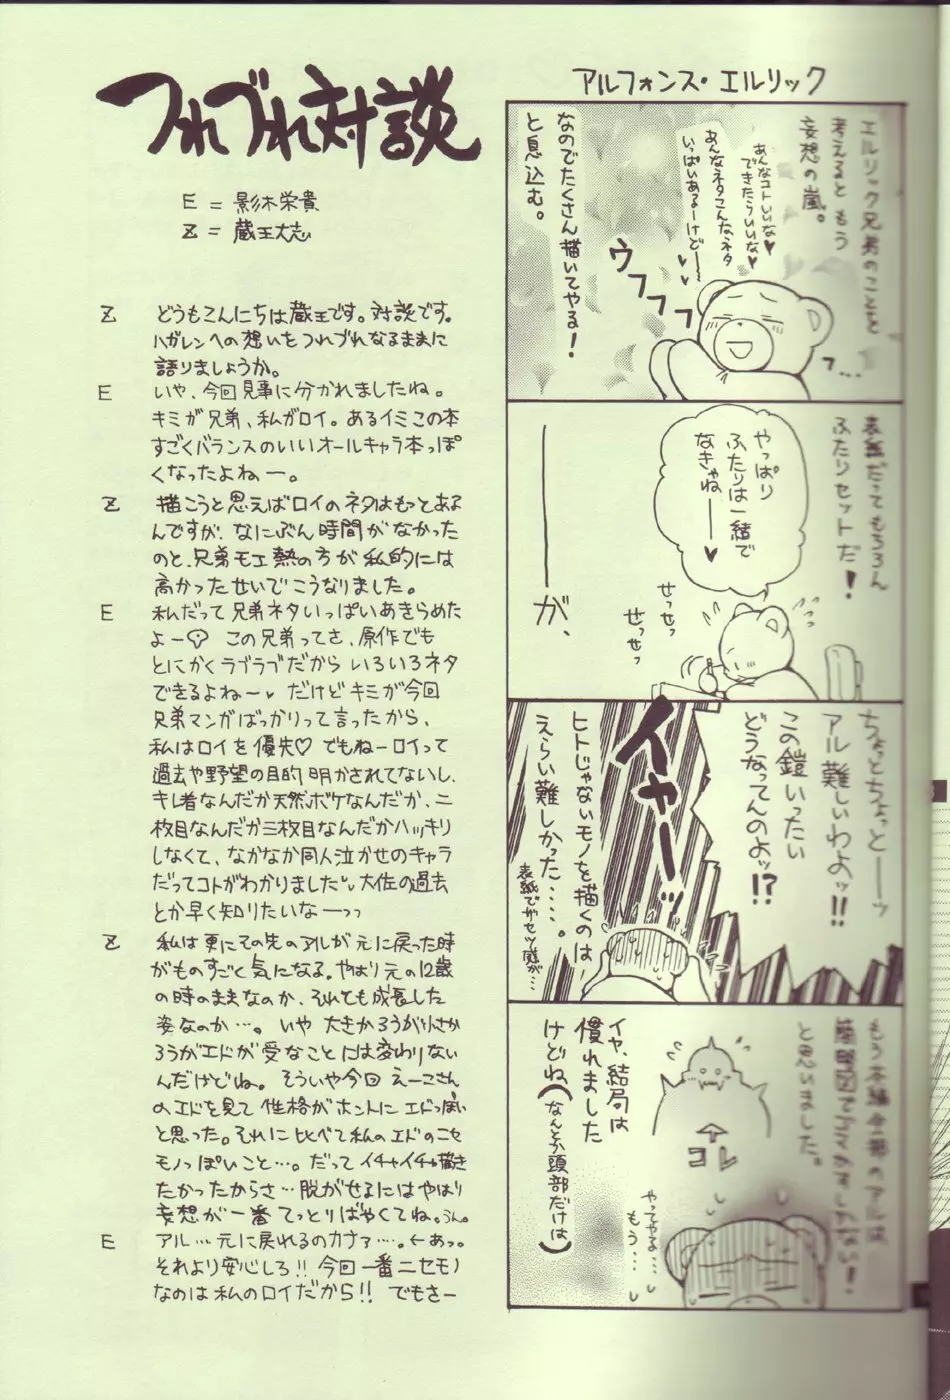 つれづれ対談
E = 影木栄貴
Z = 蔵王大志
Z どうもこんにちは蔵王です。対談です。
ハガレンへの想いをつれづれなるままに
語りましょうか。
E いや、今回見事に分かれましたね。
キミが兄弟、私がロイ。あるイミこの本
すごくバランスのいいオールキャラ本っぽ
くなったよねー。
Z 描こうと思えばロイのネタはもっとある
んですが、なにぶん時間がなかった
のと、兄弟モエ熱の方が私的には
高かったせいでこうなりました。
E 私だって兄弟ネタいっぱいあきらめた
よー この兄弟ってさ、原作でも
とにかくラブラブだからいろいろネタ
できるよねー♥ だけどキミが今回
兄弟マンガばっかりって言ったから、
私はロイを優先♡ でもねーロイって
過去や野望の目的明かされてないし、
キレ者なんだか天然ボケなんだか、二
枚目なんだか三枚目なんだかハッキリ
しなくて、なかなか同人泣かせのキャラ
だってコトがわかりました 大佐の過去
とか早く知りたいなーっっ
Z 私は更にその先のアルが元に戻った時
がものすごく気になる。やはり元の12歳
の時のままなのか、それとも成長した
姿なのか…。いや大きかろうが小さか
ろうがエドが受なことには変わりない
んだけどね。そういや今回えーこさん
のエドを見て性格がホントにエドっぽい
と思った。それに比べて私のエドのニセ
モノっぽいこと…。だってイチャイチャ描き
たかったからさ…脱がせるにはやはり
妄想が一番てっとりばやくてね。うん。
E アル…元に戻れるのカナァ…。←あっ。
それより安心しろ!!今回一番ニセモノ
なのは私のロイだから!! でもさー
アルフォンス・エルリック
エルリック兄弟のことを
考えるともう
妄想の嵐。
あんなコトいいな♥
できたらいいな♥
あんなネタこんなネタ
いっぱいあるーけどー♥♥
なのでたくさん描いてやる!
と息込む。
ウフフフフ
フ…
表紙だってもちろん
ふたりセットだ!
やっぱり
ふたりは一緒で
なきゃねー♥
せっせっ
せっせっ
が、
ちょっとちょっとーッ
アル難しいわよッ!!
この鎧いったい
どうなってんのよッ!?
イヤーッ
ヒトじゃないモノを描くのは
えらい難しかった…。
もう本編全部のアルは
簡略図でゴマかすしかない!
と思いました。
コレ
イヤ、結局は
慣れました
けどね(なんとか頭部だけは)
やってやる…
もう…